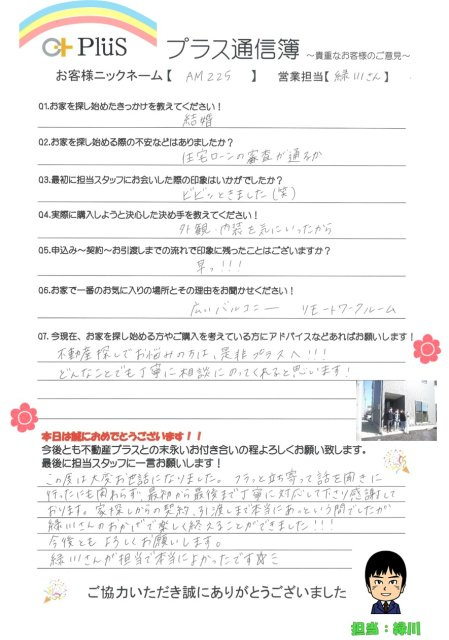 PlüS プラス通信簿 ～貴重なお客様のご意見～
お客様ニックネーム【 AM225 】 営業担当【 緑川さん 】
Q1.お家を探し始めたきっかけを教えてください！
結婚
Q2.お家を探し始める際の不安などはありましたか？
住宅ローンの審査が通るか
Q3.最初に担当スタッフにお会いした際の印象はいかがでしたか？
ビビッときました(笑)
Q4.実際に購入しようと決心した決め手を教えてください！
外観・内装を気にいったから
Q5.申込み～契約～お引渡しまでの流れで印象に残ったことはございますか？
早っ!!!
Q6.お家で一番のお気に入りの場所とその理由をお聞かせください！
広いバルコニー リモートワークルーム
Q7.今現在、お家を探し始める方やご購入を考えている方にアドバイスなどあればお願いします！
不動産探しでお悩みの方は、是非プラスへ!!!
どんなことでも丁寧に相談にのってくれると思います!
本日は誠におめでとうございます！！
今後とも不動産プラスとの末永いお付き合いの程よろしくお願い致します。
最後に担当スタッフに一言お願いします！
この度は大変お世話になりました。フラッと立ち寄って話を聞きに
行ったにも関わらず、最初から最後まで丁寧に対応して下さり感謝して
おります。家探しからの契約、引渡しまで本当にあっという間でしたが
緑川さんのおかげで楽しく終えることができました!!!
今後ともよろしくお願いします。
緑川さんが担当で本当によかったです
ご協力いただき誠にありがとうございました
担当：緑川